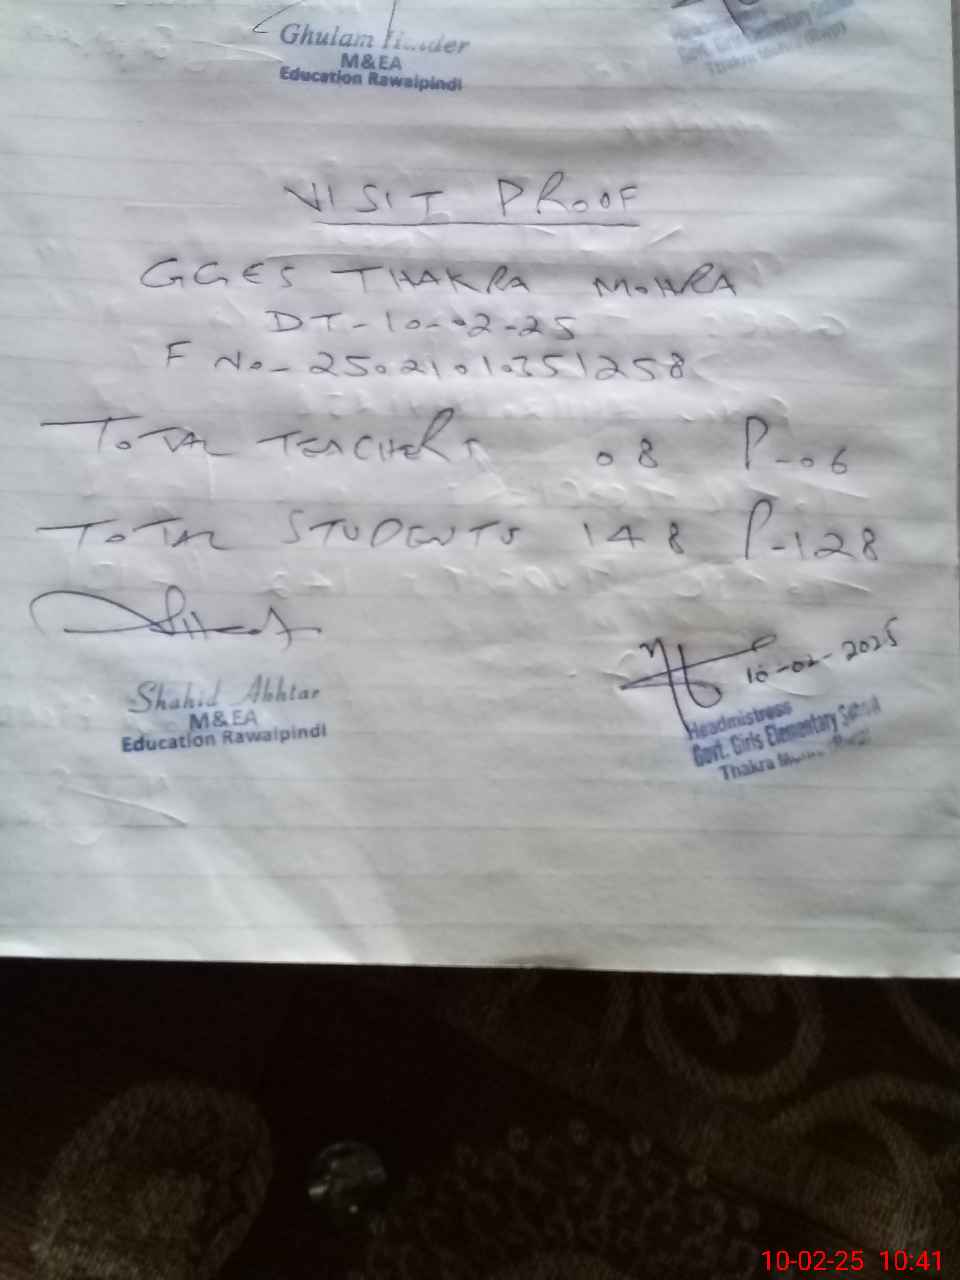 Ghulam
M&EA
Education Rawalpindi
VISIT PROOF
GGES THAKRA MOHRA
DT-10-02-25
F No-
TOTAL TEACHERS 08 P-06
TOTAL STUDENTS 148 P-128
10-02-2025
Shahid Akhtar
M&EA
Education Rawalpindi
Headmistress
Govt. Girls Elementary School
Thakra
10-02-25 10:41